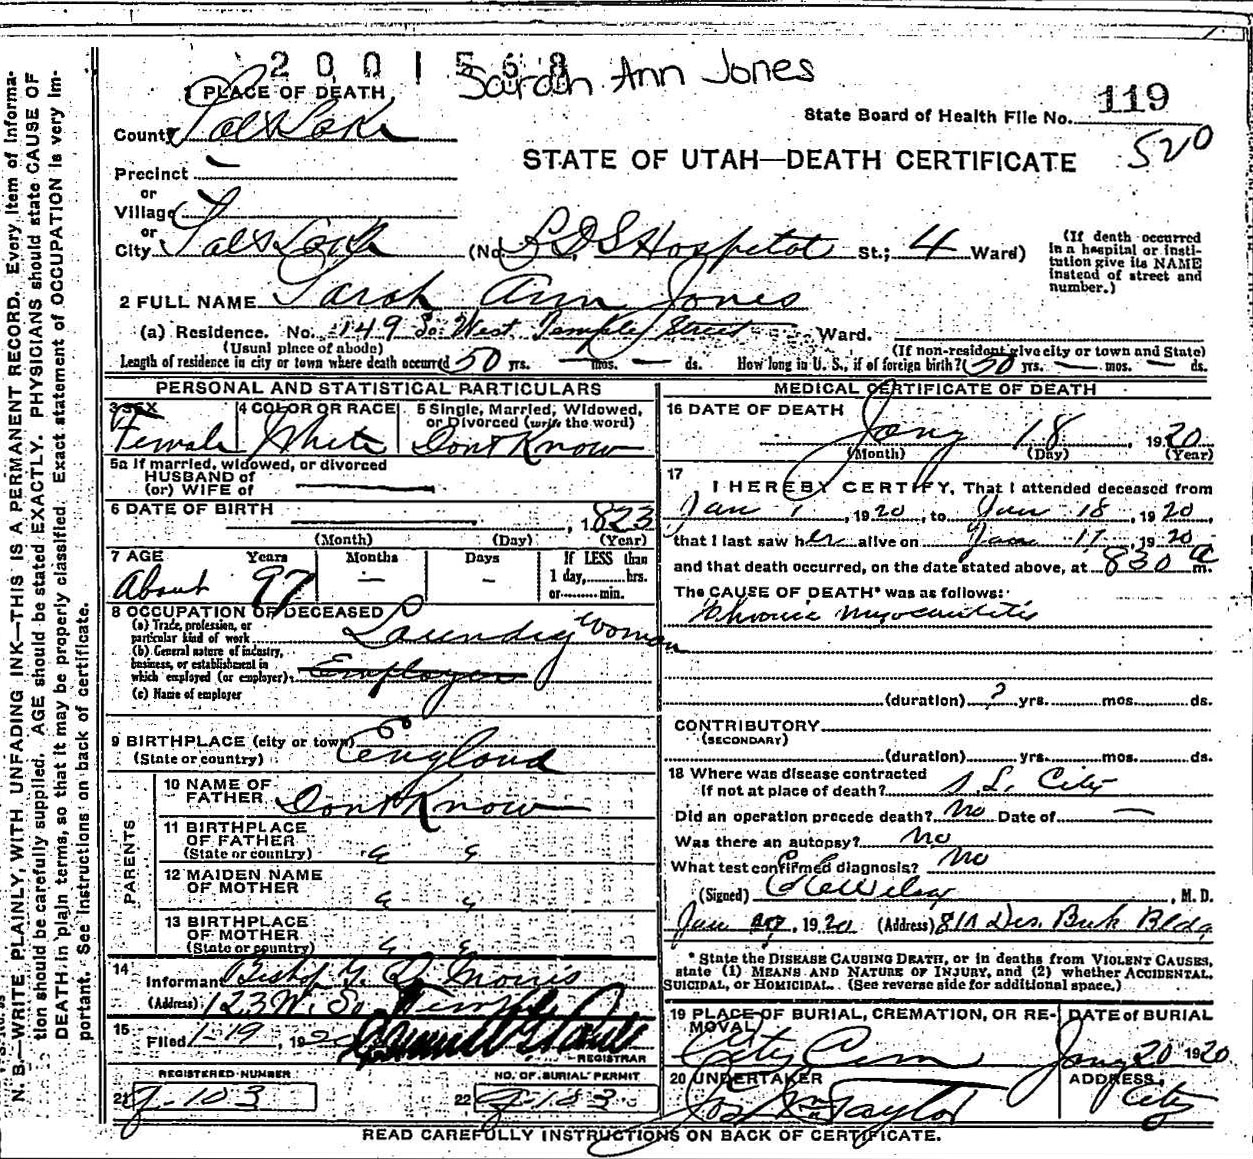 2001568 Sarah Ann Jones
1 PLACE OF DEATH
State Board of Health File No. 119
County Salt Lake
520
STATE OF UTAH—DEATH CERTIFICATE
Precinct
or
Village
or
City Salt Lake (No. L D S Hospital St.; 4 Ward)
(If death occurred in a hospital or insti-
tution give its NAME
instead of street and
number.)
2 FULL NAME Sarah Ann Jones
(a) Residence. No. 149 So. West Temple Street Ward.
(Usual place of abode) (If non-resident give city or town and State)
Length of residence in city or town where death occurred 50 yrs. — mos. — ds. How long in U. S., if of foreign birth? 50 yrs. — mos. — ds.
PERSONAL AND STATISTICAL PARTICULARS
3 SEX
Female
4 COLOR OR RACE
White
5 Single, Married, Widowed,
or Divorced (write the word)
Dont Know
5a If married, widowed, or divorced
HUSBAND of
(or) WIFE of
6 DATE OF BIRTH , 1823
(Month) (Day) (Year)
7 AGE Years Months Days If LESS than
1 day, hrs.
or min.
About 97 — —
8 OCCUPATION OF DECEASED
(a) Trade, profession, or
particular kind of work Laundry woman
(b) General nature of industry,
business, or establishment in
which employed (or employer) Employer
(c) Name of employer
9 BIRTHPLACE (city or town)
(State or country) England
PARENTS
10 NAME OF
FATHER Dont Know
11 BIRTHPLACE
OF FATHER
(State or country) " "
12 MAIDEN NAME
OF MOTHER " "
13 BIRTHPLACE
OF MOTHER
(State or country) " "
14
Informant Bishop
(Address) 123 W. So. Temple
15
Filed 1-19, 192
REGISTRAR
REGISTERED NUMBER
21 J-103
NO. OF BURIAL PERMIT
22
MEDICAL CERTIFICATE OF DEATH
16 DATE OF DEATH
Jany 18, 1920
(Month) (Day) (Year)
17
I HEREBY CERTIFY, That I attended deceased from
Jan 1, 1920, to Jan 18, 1920,
that I last saw her alive on Jan 17, 1920
and that death occurred, on the date stated above, at 830 a m.
The CAUSE OF DEATH* was as follows:
Chronic myocarditis
(duration) ? yrs. mos. ds.
CONTRIBUTORY
(SECONDARY)
(duration) yrs. mos. ds.
18 Where was disease contracted
If not at place of death? S. L. City
Did an operation precede death? No Date of —
Was there an autopsy? No
What test confirmed diagnosis? No
(Signed) , M. D.
Jan , 1920 (Address) 810 Des. Bank Bldg
* State the DISEASE CAUSING DEATH, or in deaths from VIOLENT CAUSES,
state (1) MEANS AND NATURE OF INJURY, and (2) whether ACCIDENTAL,
SUICIDAL, or HOMICIDAL. (See reverse side for additional space.)
19 PLACE OF BURIAL, CREMATION, OR RE-
MOVAL
City Cem
DATE of BURIAL
Jany 20 1920.
20 UNDERTAKER
Jos Wm Taylor
ADDRESS
City
READ CAREFULLY INSTRUCTIONS ON BACK OF CERTIFICATE.
N. B.—WRITE PLAINLY, WITH UNFADING INK—THIS IS A PERMANENT RECORD. Every item of informa-
tion should be carefully supplied. AGE should be stated EXACTLY. PHYSICIANS should state CAUSE OF
DEATH in plain terms, so that it may be properly classified. Exact statement of OCCUPATION is very im-
portant. See instructions on back of certificate.